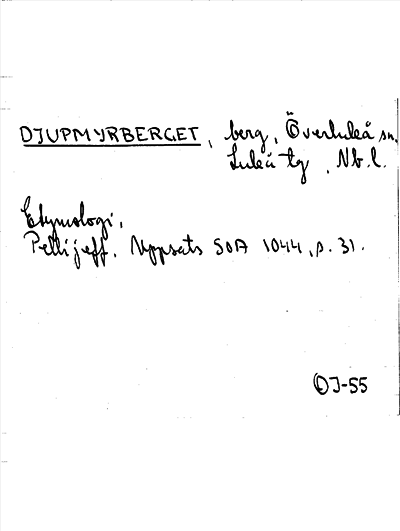 DJUPMYRBERGET, berg, Överluleå sn.
Luleå tg, Nb.l.
Etymologi,
Pellijeff. Uppsats SOA 1044, s. 31.
OJ-55